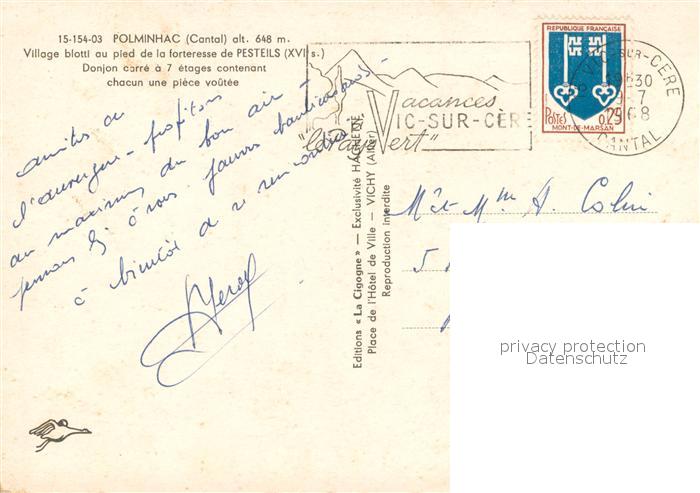 15-154-03 POLMINHAC (Cantal) alt. 648 m.
Village blotti au pied de la forteresse de PESTEILS (XVI s.)
Donjon carré à 7 étages contenant
chacun une pièce voûtée
amitiés de
l'auvergne - profitons
au maximum du bon air -
pensons à vous pauvres
à bientôt de
Vacances
VIC-SUR-CÈRE
Vert"
REPUBLIQUE FRANÇAISE
POSTES 0,25
MONT-DE-MARSAN
VIC-SUR-CÈRE
19H30
9-7
1968
CANTAL
Editions « La Cigogne » — Exclusivité HACHETTE
Place de l'Hôtel de Ville — VICHY (Allier)
Reproduction interdite
Mr et Mme A. Colin
5
privacy protection
Datenschutz